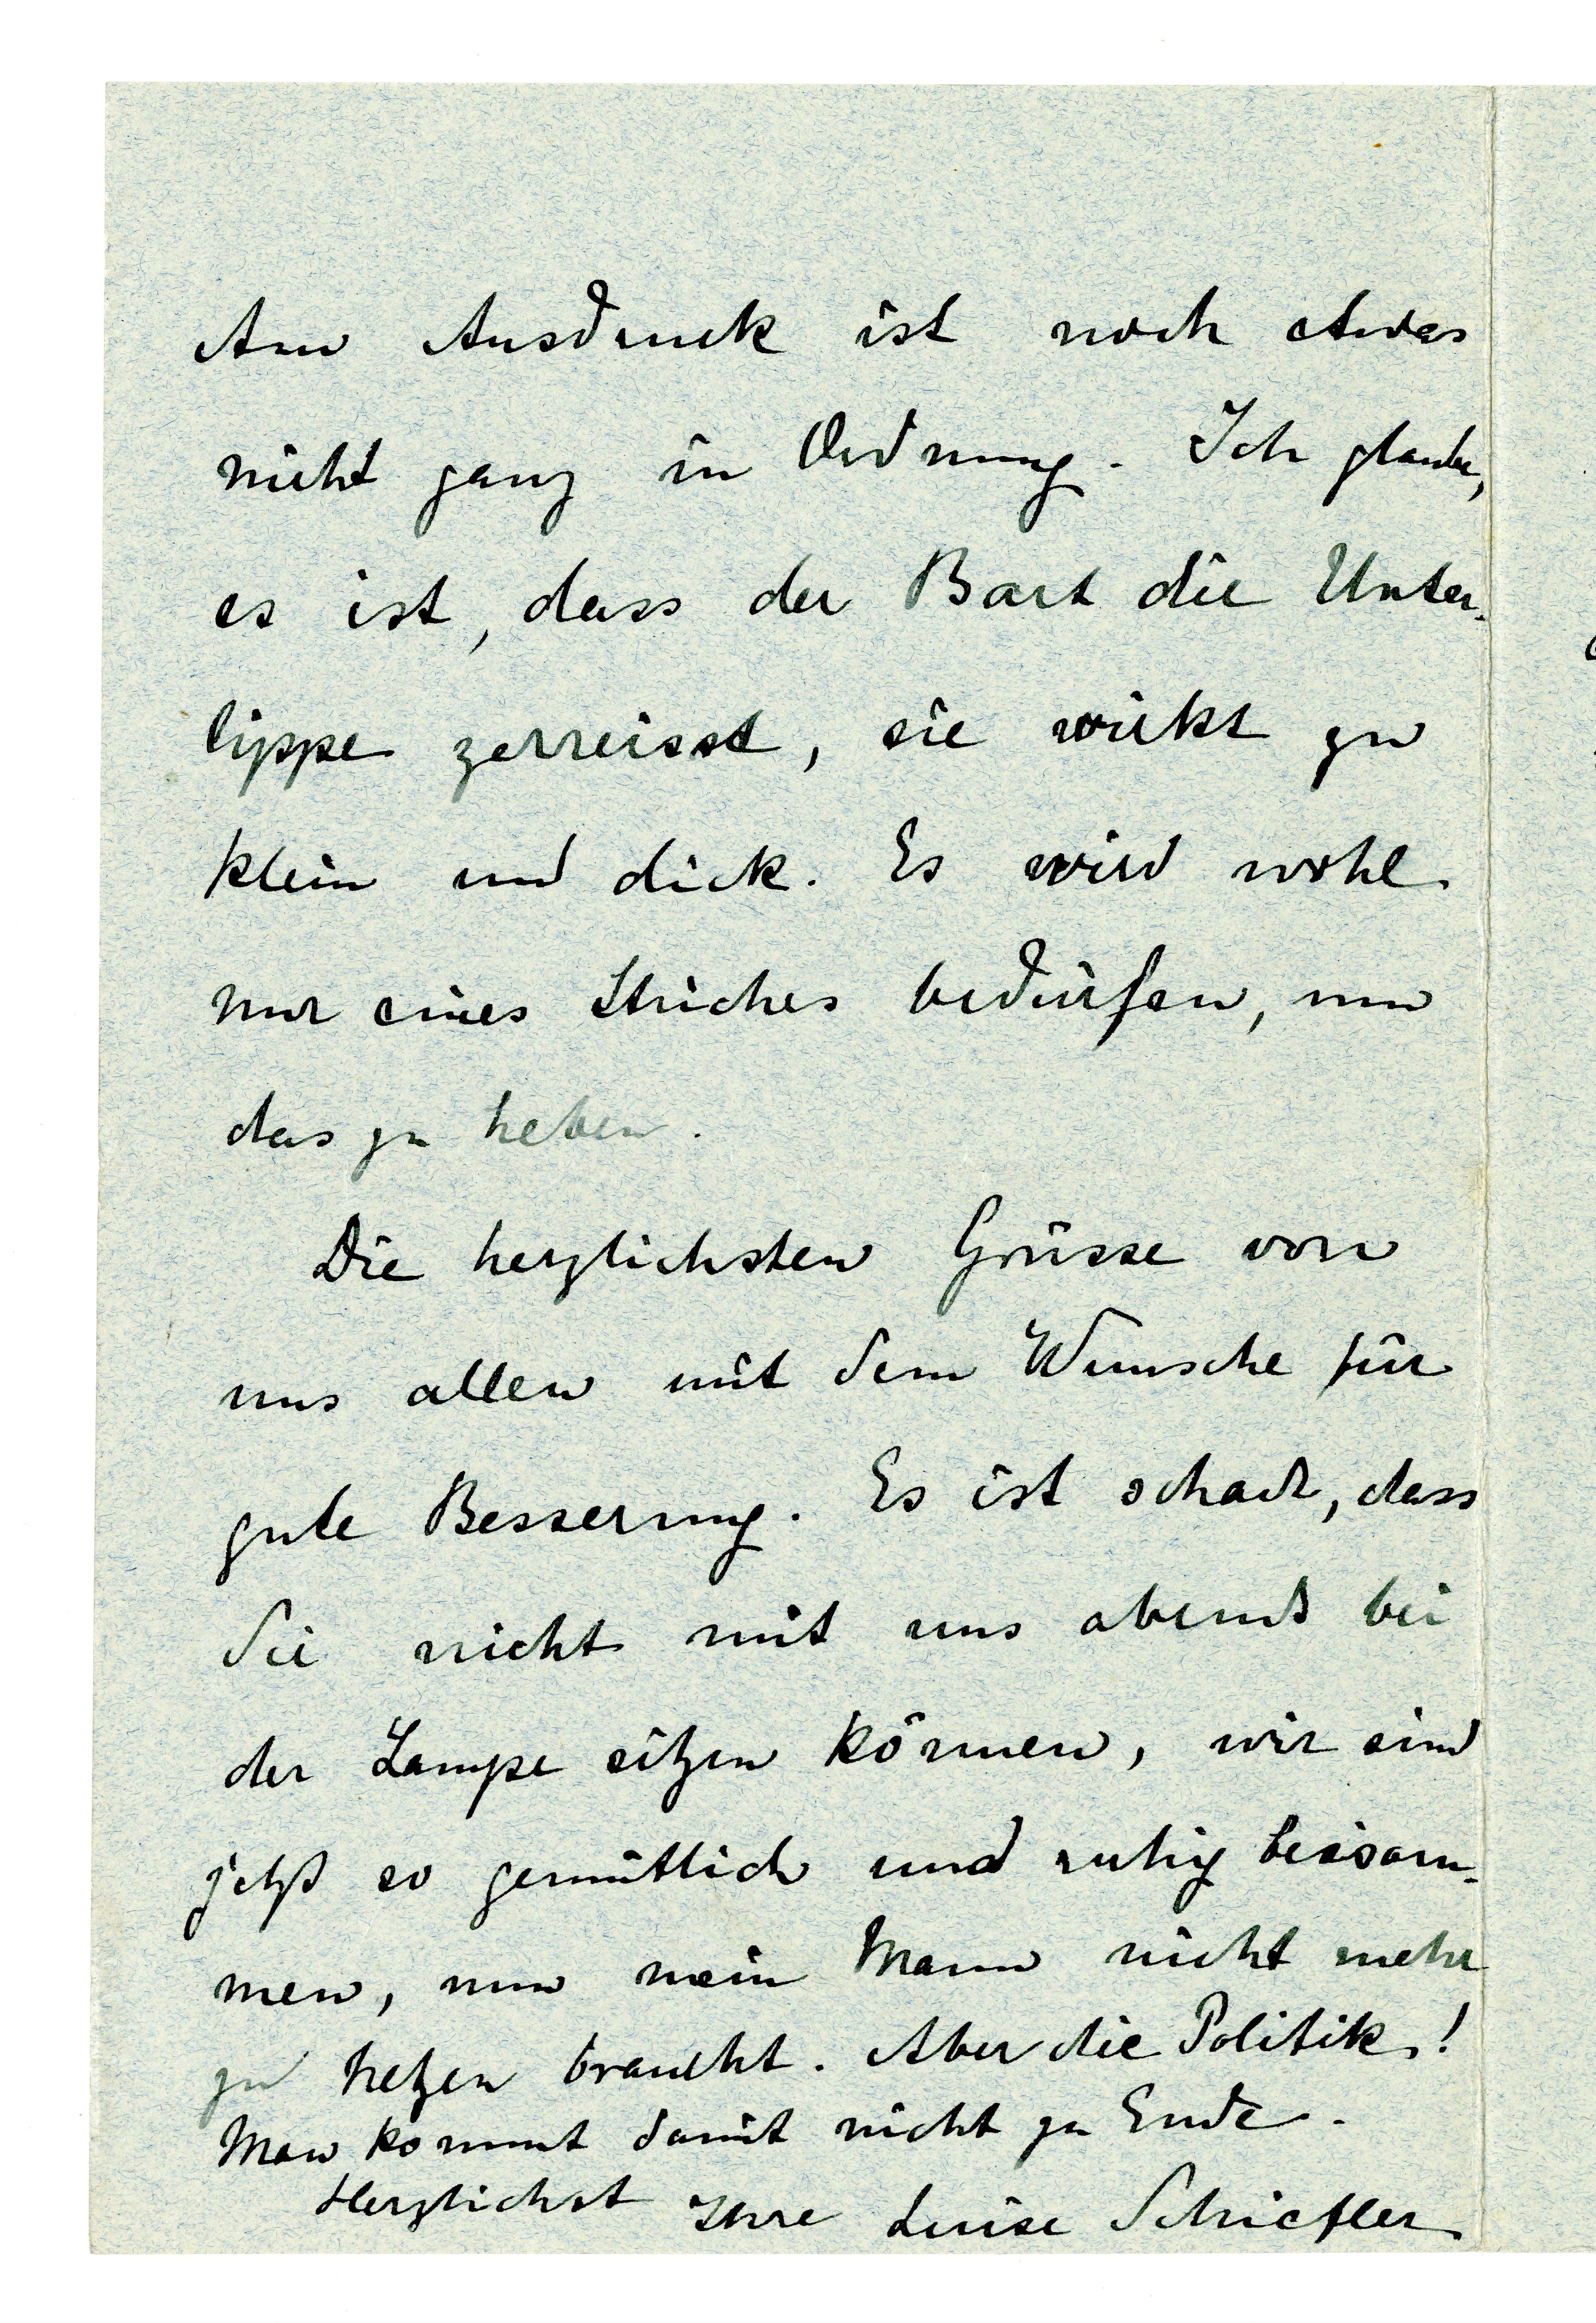 Am Ausdruck ist noch etwas
nicht ganz in Ordnung. Ich glaube,
es ist, dass der Bart die Unter-
lippe zerreisst, sie wirkt zu
klein und dick. Es wird wohl
nur eines Striches bedürfen, um
das zu heben.
Die herzlichsten Grüsse von
uns allen mit dem Wunsche für
gute Besserung. Es ist schade, dass
Sie nicht mit uns abends bei
der Lampe sitzen können, wir sind
jetzt so gemütlich und ruhig beisam-
men, nun mein Mann nicht mehr
zu hetzen braucht. Aber die Politik!
Man kommt damit nicht zu Ende.
Herzlichst Ihre Luise Schiefler